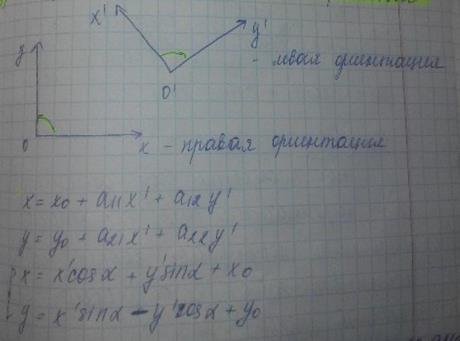 x' y'
- левая ориентация
O'
y
O x - правая ориентация
x = x₀ + a₁₁x' + a₁₂y'
y = y₀ + a₂₁x' + a₂₂y'
x = x'cosα + y'sinα + x₀
y = x'sinα - y'cosα + y₀